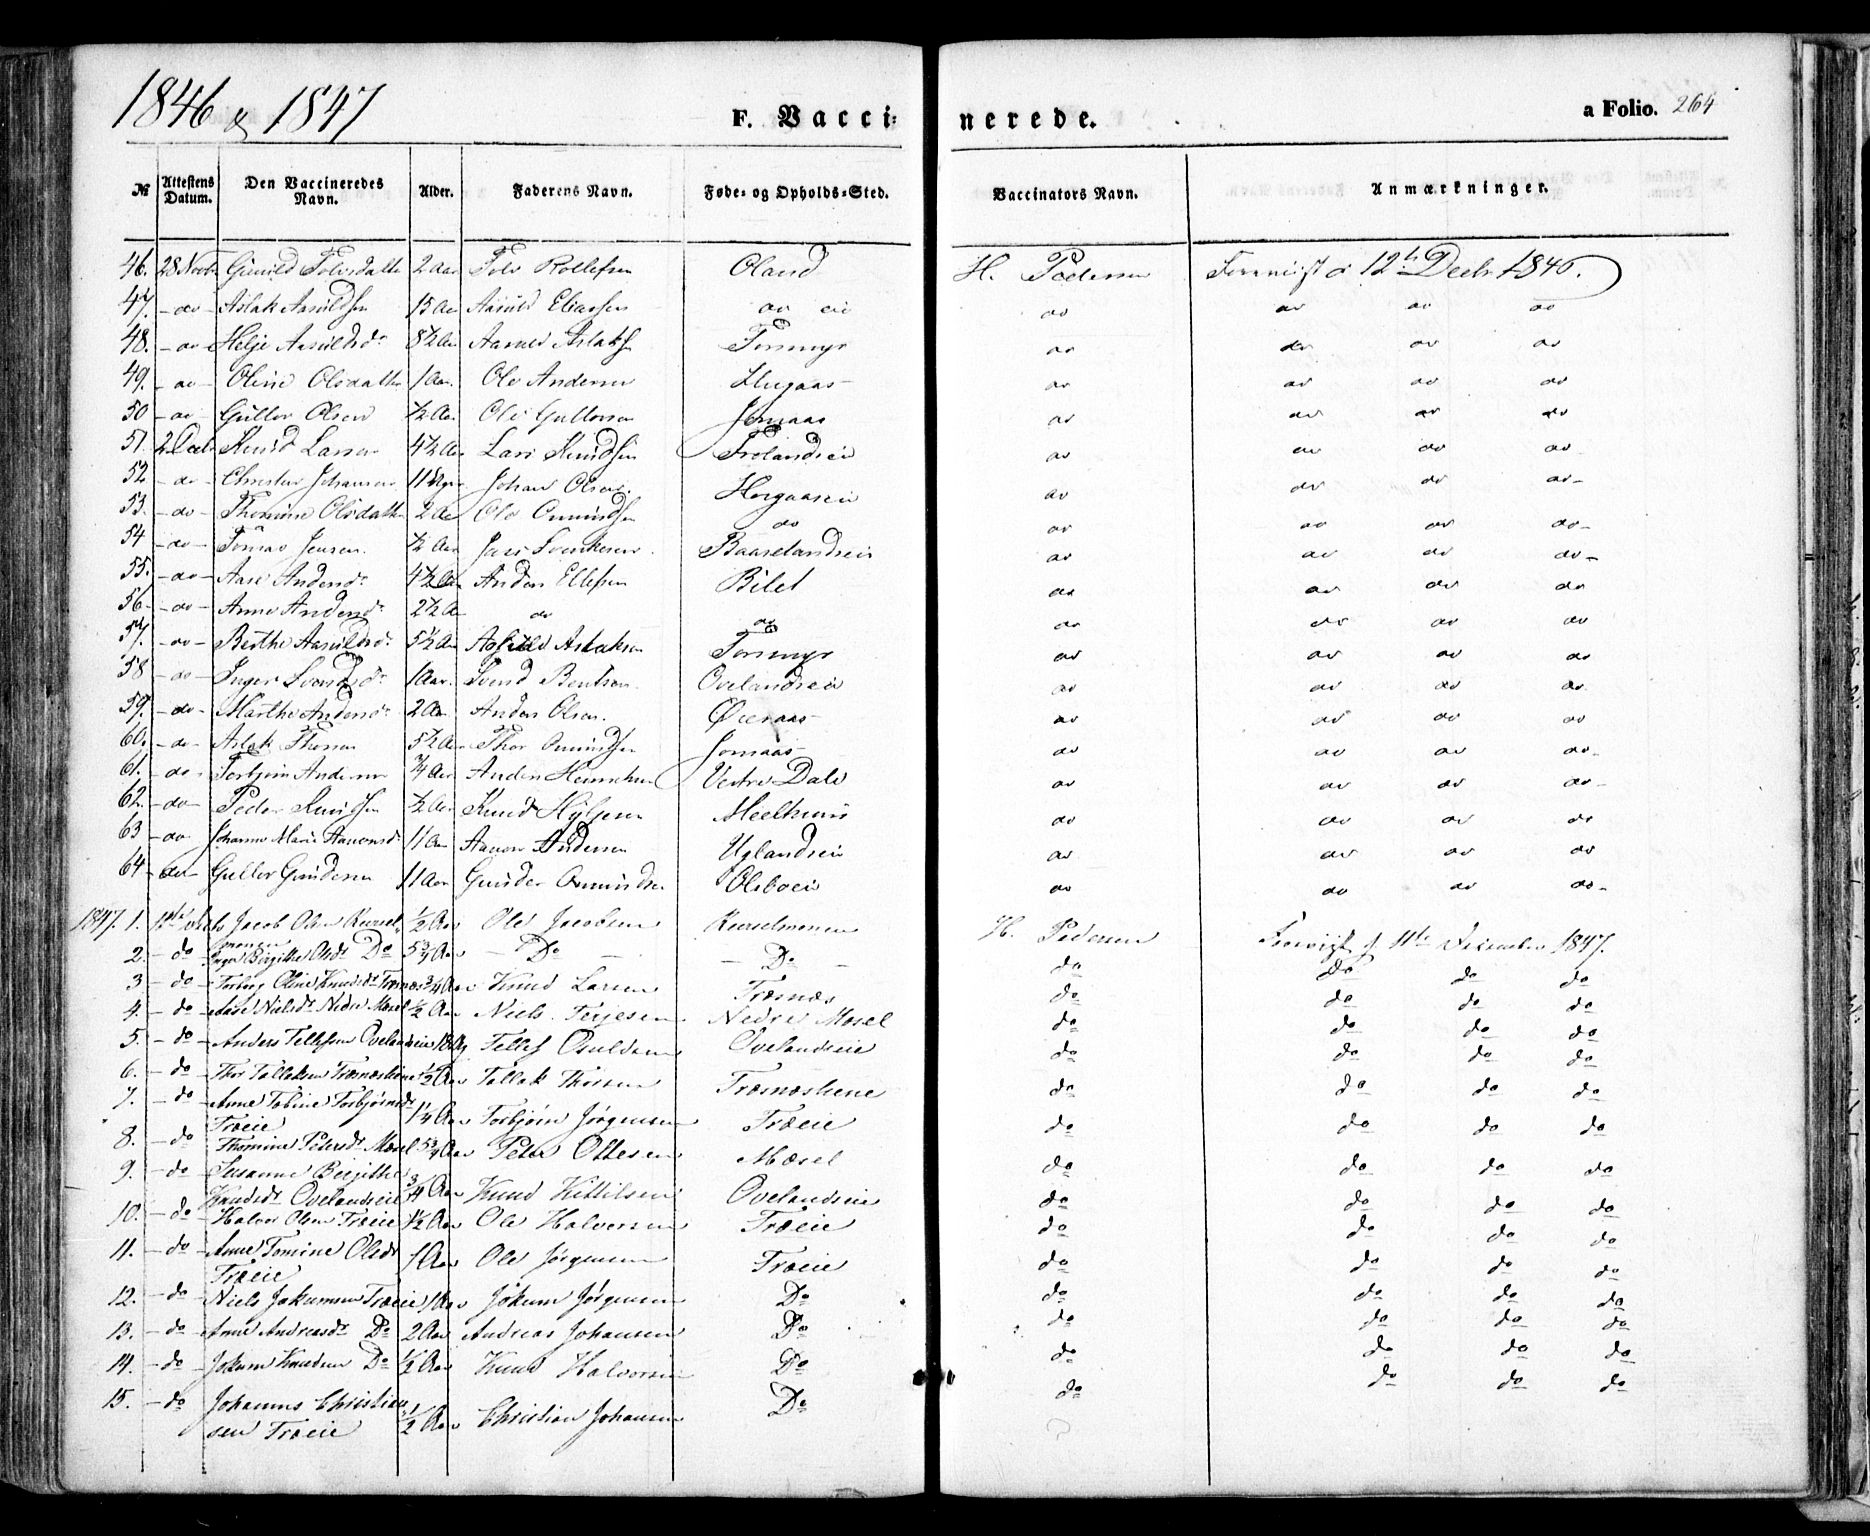 1846 & 1847
F. Vacci-
nerede.
a Folio. 264
№ Attestens Datum. Den Vaccineredes Navn. Alder. Faderens Navn. Føde- og Opholds-Sted. Vaccinators Navn. Anmærkninger.
46. 28 Novb Gunild Tolvsdatter 2 Aar Tolv Rollefsen Oland H. Pedersen Foreviist d 12th Decbr 1846.
47. - do Aslak Aasuldsen 13 Aar Aasuld Eliassen do eie do do do do
48. - do Helje Aasuldsdr 8½ Aar Aasuld Aslaksen Torsmyr do do do do
49. - do - Oline Olsdatter 1 Aar. Ole Andersen Hugaas do do do do
50 - do - Gullov Olsen ½ Aar Ole Gullovsen Jomaas do do do do
51. 2 Decb Knud Larsen 4½ Aar Lars Knudsen Frolandseie do do do do
52 - do - Christen Johansen 11 Uger Johan Olsen. Hørgaaseie do do do do-
53. - do - Thomine Olsdatter 2 Aar Ole Omundsen do do do do do-
54 - do - Tomas Jensen. ½ Aar Jens Svenkesen Baaselandseie do do do do-
55. - do - Aase Andersdr 4½ Aar Anders Ellefsen Bilet do do do do
56 - do - Anne Andersdr 2½ Aar do do do do do do
57. - do - Berthe Aasuldsdr 5½ Aar Aasuld Aslaksen Torsmyr do do do do
58 - do - Inger Svendsdr 1 Aar. Svend Bentsen Ovelandseie do do do do
59. - do - Marthe Andersdr 2 Aar Anders Olsen. do do do do
60. - do - Aslak Thorsen 5½ Aar Thor Omundsen Jomaas do do do do-
61. - do - Torbjørn Andersen ¾ Aar Anders Vestre Dale do do do do-
62. - do - Peder Knudsen ½ Aar Knud Hyljesen do do do do
63 - do Johanne Marie Aanonsdr 11 Aar Aanon Andersen Uglandseie do do do do
64 - do - Gullov Gundersen 11 Aar Gunder Omundsen Olsboeie do do do do-
1847. 1. Jacob Olsen ½ Aar Ole Jacobsen H. Pedersen Foreviist d. 11te December 1847.
2. - do Inger Birgitte Olsdr Do 5¾ Aar - Do - - Do - do do do do
3 - do - Torborg Oline Knudsdr Træmæs ¾ Aar Knud Larsen Træmæs do do do do
4. - do - Aase Nielsdr Nedre Mæsel ½ Aar Niels Terjesen Nedre Mæsel do do do do
5. - do - Anders Tellefsen Ovelandseie Tellef Osuldsen Ovelandseie do do do do
6. - do - Thor Tallaksen ½ Aar Tallak Thorsen do do do do
7. - do - Anne Tobine Torbjørnsdr
Træeie 1¼ Aar Torbjørn Jørgensen Træeie do do do do
8. - do Thomine Petersdr Mæsel 5¾ Aar Peter Ottesen Mæsel do do do do
9. - do - Susanne Birgitte
Knudsdt Ovelandseie ¾ Aar Knud Kittilsen Ovelandseie do do do do
10. - do - Halvor Olsen Træeie 1½ Aar Ole Halvorsen Træeie do do do do
11. - do - Anne Tomine Olsdt
Træeie 1 Aar Ole Jørgensen Træeie do do do do
12. - do - Niels Jokumsen Træeie 1 Aar Jokum Jørgensen Do do do do do
13. - do - Anne Andreasdt Do 2 Aar Andreas Johansen Do do do do do
14. - do - Jokum Knudsen Do ½ Aar Knud Halvorsen Do do do do do
15. - do Johannes Christian-
sen Træeie ½ Aar Christian Johansen Do do do do do